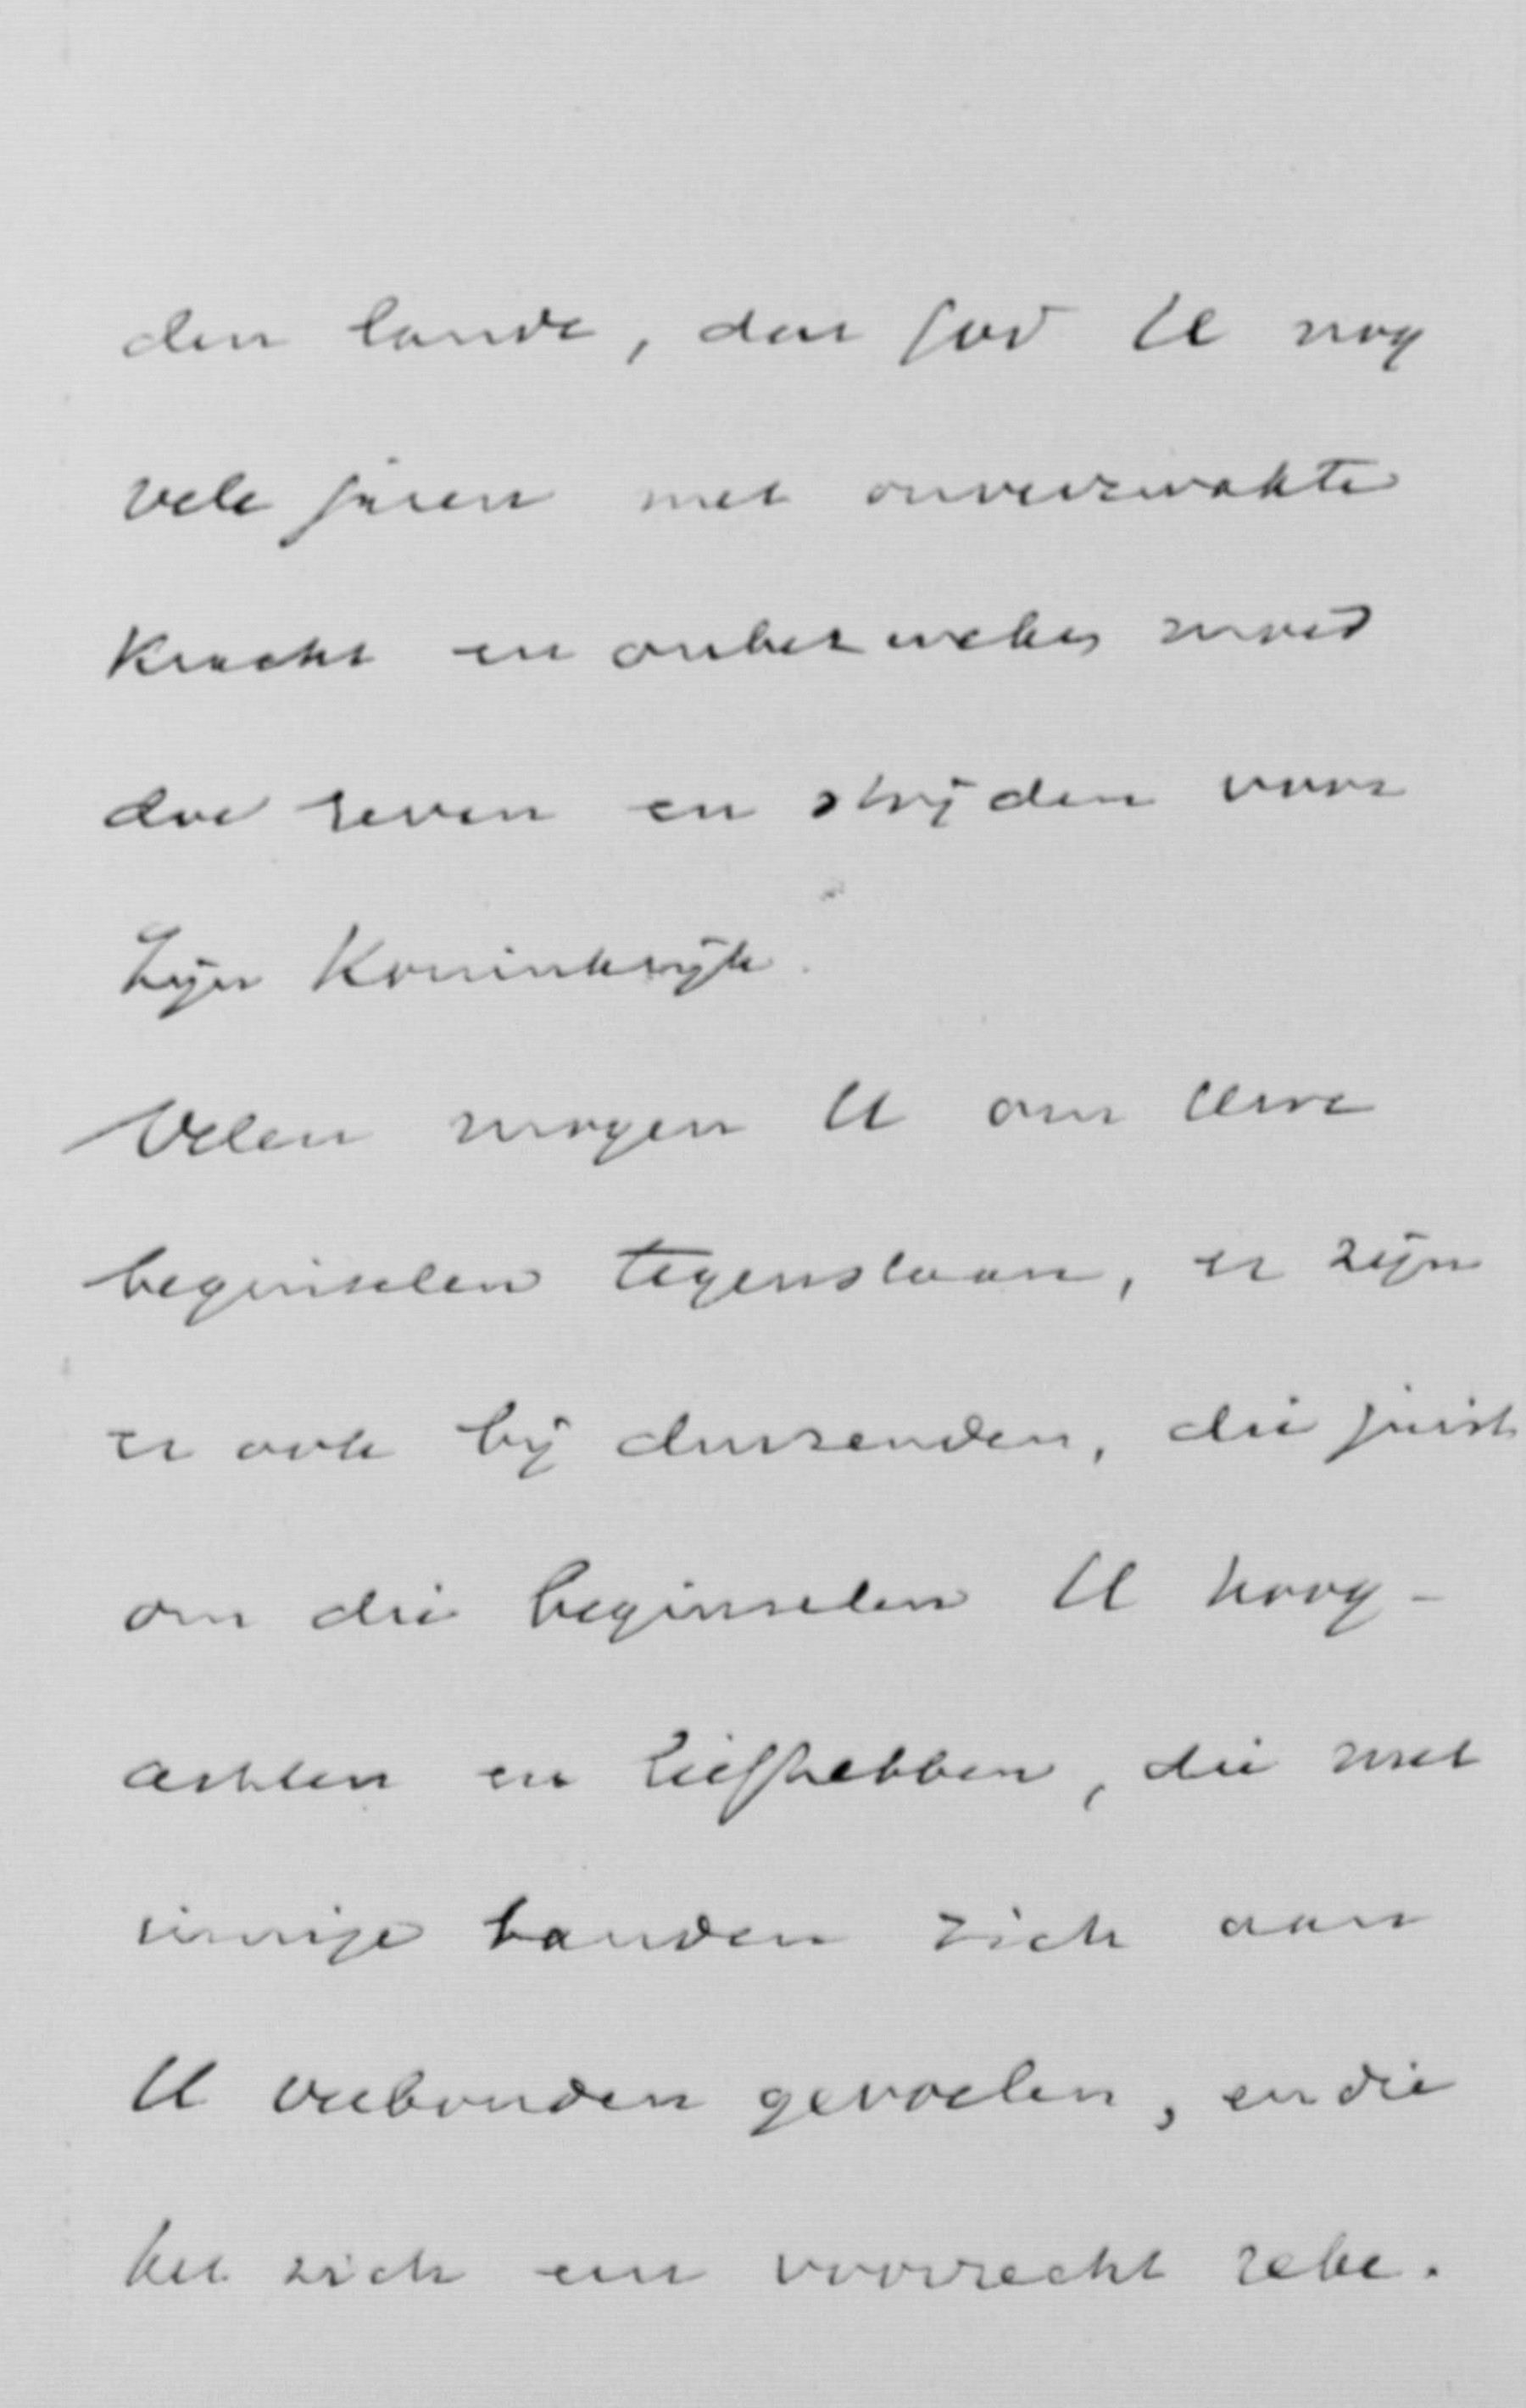 den lande, dat God U nog
vele jaren met onverzwakte
kracht en onbezweken moed
doe leven en strijden voor
Zijn Koninkrijk.
Velen mogen U om Uwe
beginselen tegenstaan, er zijn
er ook bij duizenden, die juist
om die beginselen U hoog-
achten en liefhebben, die met
innige banden zich aan
U verbonden gevoelen, en die
het zich een voorrecht